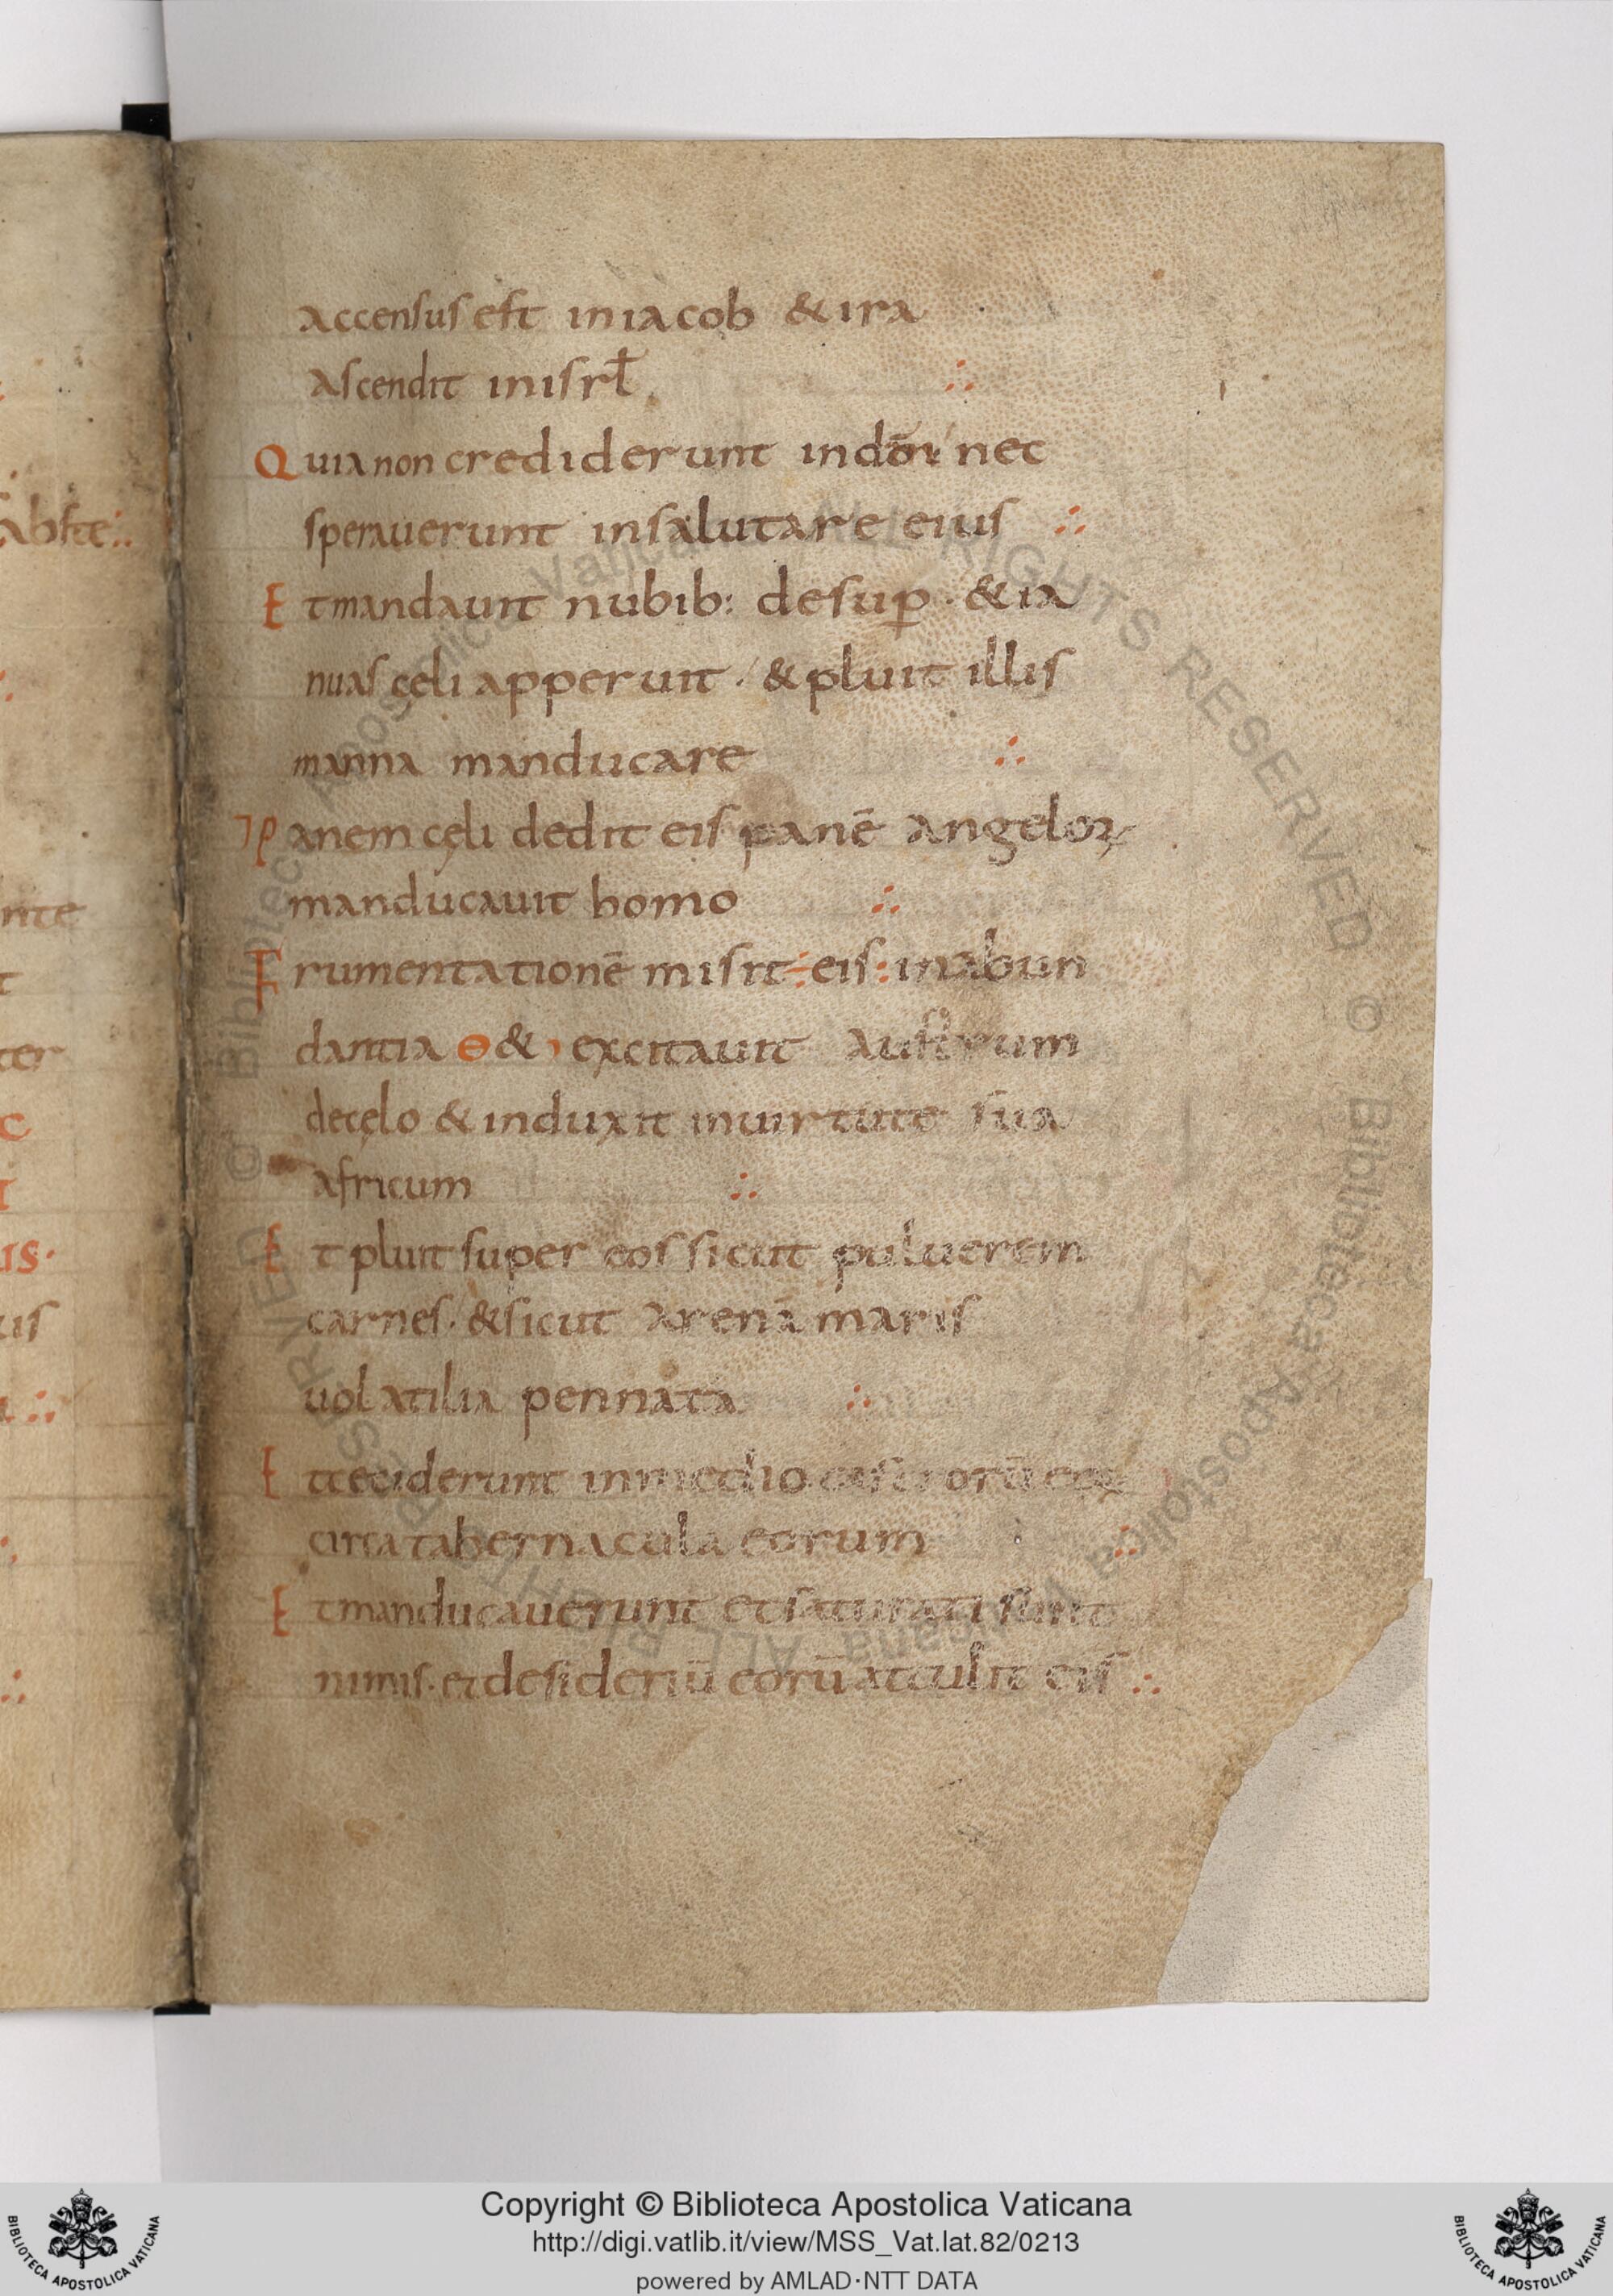 accensus est in iacob & ira
ascendit in isrł.
Quia non crediderunt in dō nec
sperauerunt in salutare eius ∴
Et mandauit nubib: desup̱ · & ia
nuas cęli apperuit · & pluit illis
manna manducare ∴
Panem cęli dedit eis panē angeloꝝ
manducauit homo ∴
Frumentationē misit eis: in abun
dantia & excitauit austrum
de cęlo & induxit in uirtute sua
africum ∴
Et pluit super eos sicut puluerem
carnes · & sicut arenā maris
uolatilia pennata ∴
Et ceciderunt in medio castrorū eoꝝ
circa tabernacula eorum ∴
Et manducauerunt et saturati sunt
nimis · et desideriū eorū attulit eis ∴
abste ∴
nte
t
ter
c
is·
us
Copyright © Biblioteca Apostolica Vaticana
http://digi.vatlib.it/view/MSS_Vat.lat.82/0213
powered by AMLAD·NTT DATA
BIBLIOTECA APOSTOLICA VATICANA
BIBLIOTECA APOSTOLICA VATICANA
© Biblioteca Apostolica Vaticana ALL RIGHTS RESERVED © Biblioteca Apostolica Vaticana ALL RIGHTS RESERVED